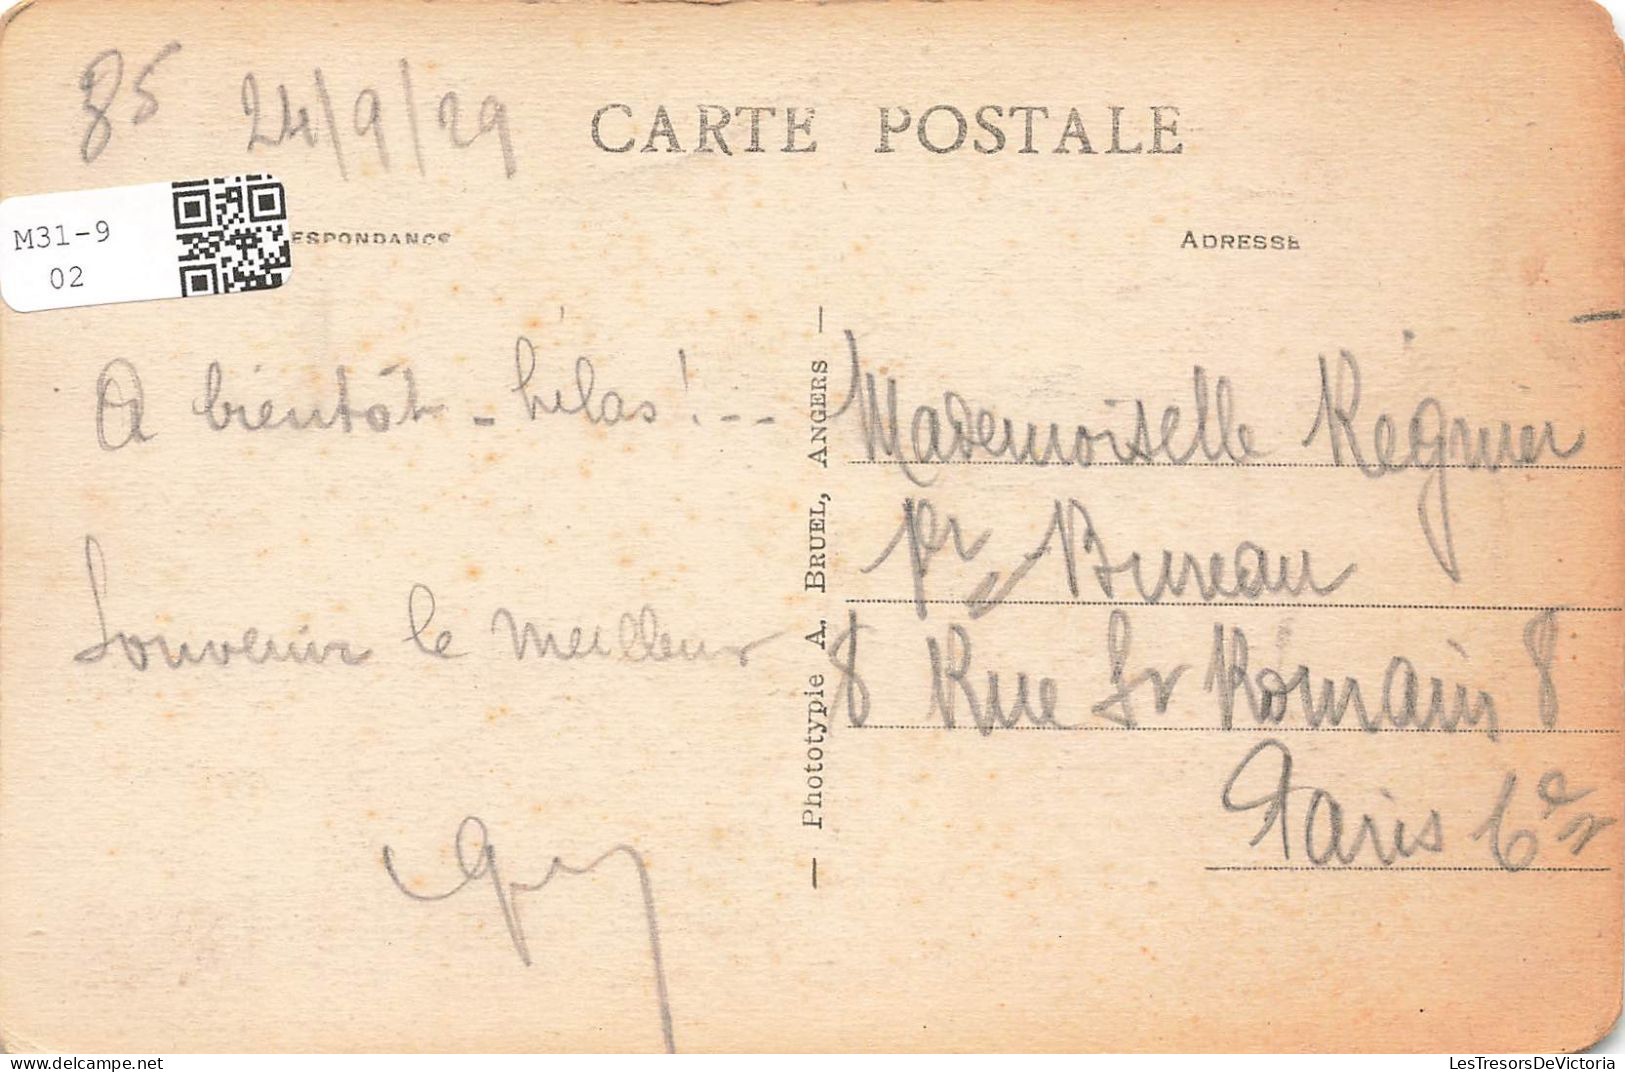 85 24/9/29
CARTE POSTALE
M31-9
02
ESPONDANCE
ADRESSE
A bientôt - hélas ! ---
Souvenir le meilleur
— Phototypie A. BRUEL, ANGERS —
Mademoiselle Régnier
Bureau
8 Rue St Romain 8
Paris 6e
LesTresorsDeVictoria